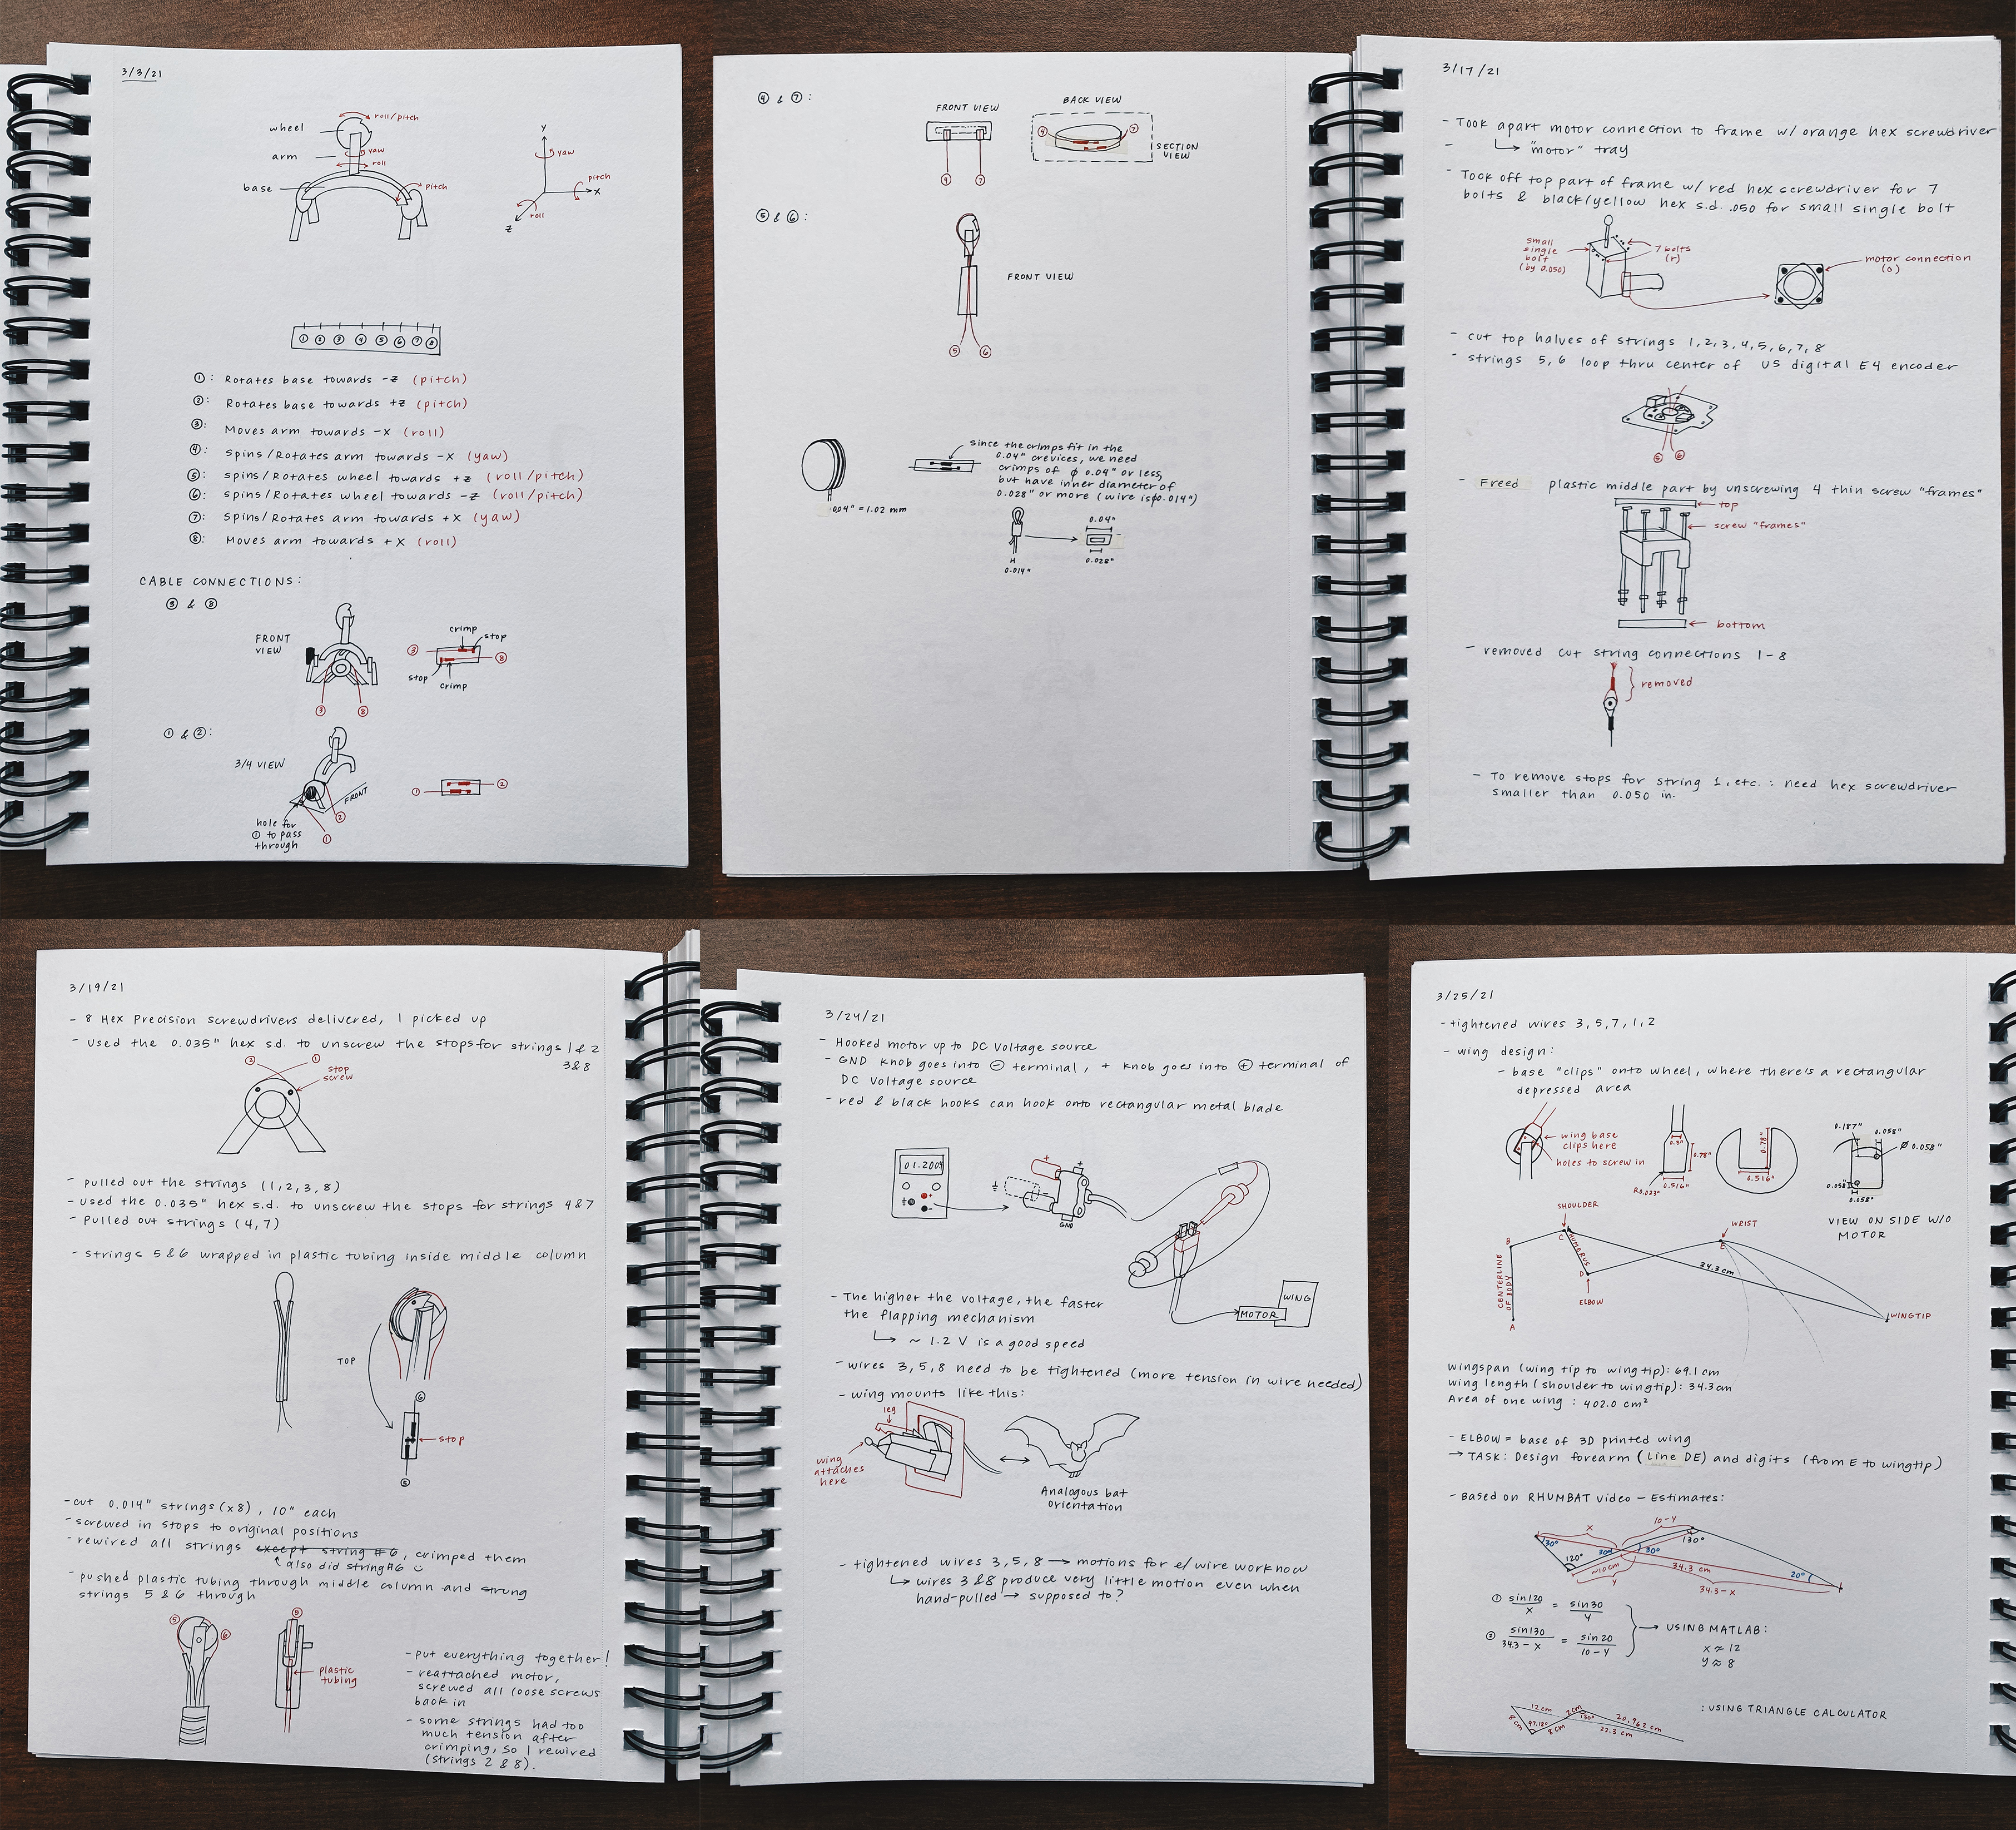 3/3/21
roll/pitch
wheel
yaw
arm
roll
base
pitch
Y
yaw
pitch
X
roll
Z
① ② ③ ④ ⑤ ⑥ ⑦ ⑧
①: Rotates base towards -z (pitch)
②: Rotates base towards +z (pitch)
③: Moves arm towards -x (roll)
④: Spins/Rotates arm towards -x (yaw)
⑤: spins/Rotates wheel towards +z (roll/pitch)
⑥: spins/Rotates wheel towards -z (roll/pitch)
⑦: Spins/Rotates arm towards +x (yaw)
⑧: Moves arm towards +x (roll)
CABLE CONNECTIONS:
③ & ⑧
FRONT
VIEW
③ ⑧
crimp
stop
③ ⑧
stop
crimp
① & ②:
3/4 VIEW
FRONT
hole for
① to pass
through
② ①
① ②
④ & ⑦:
FRONT VIEW
④ ⑦
BACK VIEW
④ ⑦
SECTION
VIEW
⑤ & ⑥:
FRONT VIEW
⑤ ⑥
.04" = 1.02 mm
since the crimps fit in the
0.04" crevices, we need
crimps of ϕ 0.04" or less,
but have inner diameter of
0.028" or more (wire is ϕ0.014")
H
0.014"
0.04"
0.028"
3/17/21
- Took apart motor connection to frame w/ orange hex screwdriver
- ↳ "motor" tray
- Took off top part of frame w/ red hex screwdriver for 7
bolts & black/yellow hex s.d. .050 for small single bolt
small
single
bolt
(by 0.050)
7 bolts
(r)
motor connection
(o)
- cut top halves of strings 1,2,3,4,5,6,7,8
- strings 5,6 loop thru center of US digital E4 encoder
⑤ ⑥
- Freed plastic middle part by unscrewing 4 thin screw "frames"
top
screw "frames"
bottom
- removed cut string connections 1-8
removed
- To remove stops for string 1, etc.: need hex screwdriver
smaller than 0.050 in.
3/19/21
- 8 Hex Precision screwdrivers delivered, I picked up
- used the 0.035" hex s.d. to unscrew the stops for strings 1 & 2
3 & 8
② ①
stop
screw
- pulled out the strings (1,2,3,8)
- used the 0.035" hex s.d. to unscrew the stops for strings 4 & 7
- pulled out strings (4,7)
- strings 5 & 6 wrapped in plastic tubing inside middle column
TOP
⑥
stop
⑤
- cut 0.014" strings (x8), 10" each
- screwed in stops to original positions
- rewired all strings except string #6, crimped them
↑ also did string #6 ☺
- pushed plastic tubing through middle column and strung
strings 5 & 6 through
⑤ ⑥
⑤
plastic
tubing
- put everything together!
- reattached motor,
screwed all loose screws
back in
- some strings had too
much tension after
crimping, so I rewired
(strings 2 & 8).
3/24/21
- Hooked motor up to DC Voltage source
- GND knob goes into ⊖ terminal, + knob goes into ⊕ terminal of
DC Voltage source
- red & black hooks can hook onto rectangular metal blade
01.200
+
-
+
+
-
GND
WING
MOTOR
- The higher the voltage, the faster
the flapping mechanism
↳ ~ 1.2 V is a good speed
- wires 3,5,8 need to be tightened (more tension in wire needed)
- wing mounts like this:
leg
wing
attaches
here
Analogous bat
orientation
- tightened wires 3,5,8 → motions for e/ wire work now
↳ wires 3 & 8 produce very little motion even when
hand-pulled → supposed to?
3/25/21
- tightened wires 3,5,7,1,2
- wing design:
- base "clips" onto wheel, where there's a rectangular
depressed area
wing base
clips here
holes to screw in
0.3"
0.78"
R0.023"
0.516"
0.78"
0.516"
0.187"
0.058"
Ø 0.058"
0.058"
0.058"
VIEW ON SIDE W/O
MOTOR
SHOULDER
B
C
HUMERUS
D
ELBOW
WRIST
E
34.3 cm
WINGTIP
CENTERLINE
OF BODY
A
wingspan (wing tip to wing tip): 69.1 cm
wing length (shoulder to wingtip): 34.3 cm
Area of one wing : 402.0 cm²
- ELBOW = base of 3D printed wing
→ TASK: Design forearm (Line DE) and digits (from E to wingtip)
- Based on RHUMBAT video - Estimates:
x
10-y
30°
120°
30°
30°
130°
~10cm
y
34.3 cm
34.3-x
20°
① sin120/x = sin30/y
② sin130/34.3-x = sin20/10-y
→ USING MATLAB:
x ≈ 12
y ≈ 8
12 cm
8 cm
97.18°
8 cm
2 cm
130°
20.962 cm
22.3 cm
: USING TRIANGLE CALCULATOR